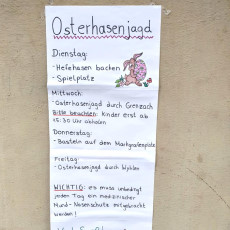 Osterhasenjagd
Dienstag:
- Hefehasen backen
- Spielplatz
Mittwoch:
- Osterhasenjagd durch Grenzach
Bitte beachten: Kinder erst ab
15:30 Uhr abholen
Donnerstag:
- Basteln auf dem Markgrafenplatz
Freitag:
- Osterhasenjagd durch Wyhlen
WICHTIG: es muss unbedingt
jeden Tag ein medizinischer
Mund-Nasenschutz mitgebracht
werden!